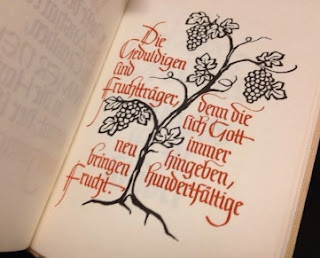 Die
Geduldigen
sind
Fruchtträger, denn die
sich Gott
immer
neu hingeben,
bringen hundertfältige
Frucht.